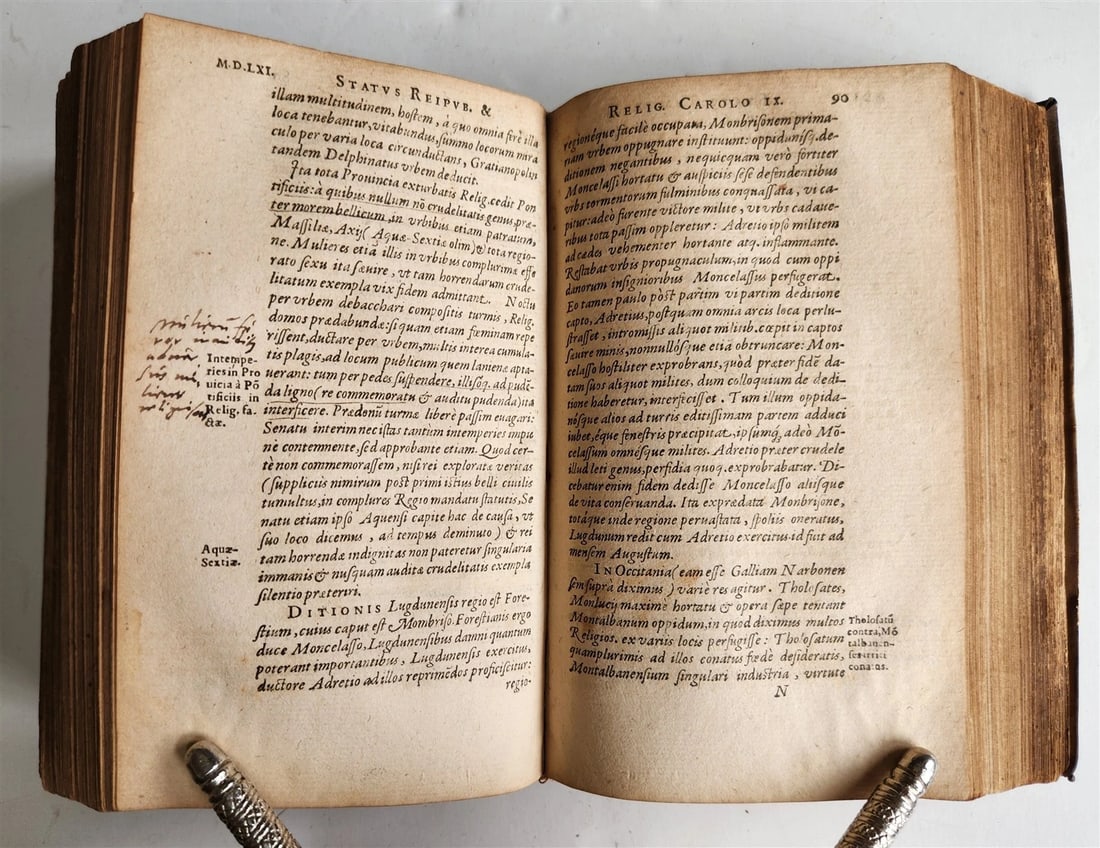 M.D.LXI.
STATVS REIPVB. &
illam multitudinem, hostem, à quo omnia ferè illa
loca tenebantur, vitabundus, summo locorum mira
culo per varia loca circunductans, Gratianopolin
tandem Delphinatus vrbem deducit.
Ita tota Prouincia exturbatis Relig. cedit Pon
tificiis: à quibus nullum nō crudelitatis genus, præ-
ter morem bellicum, in vrbibus etiam patratum,
Massiliæ, Axij (Aquæ-Sextiæ olim) & tota regio-
ne. Mulieres etiā illis in vrbibus complurimæ effe
rato sexu ita sæuire, vt tam horrendarum crude-
litatum exempla vix fidem admittant. Noctu
per vrbem debacchari compositis turmis, Relig.
domos prædabundæ: si quam etiam fœminam repe
rissent, ductare per vrbem, multis interea cumula-
tis plagis, ad locum publicum quem lanienæ apta-
uerant: tum per pedes suspendere, illisoq. ad pudē-
da ligno (re commemoratu & auditu pudenda) ita
interficere. Prædonū turmæ liberè passim euagari:
Senatu interim nec istas tantùm intemperies impu
nè contemnente, sed approbante etiam. Quod cer-
tè non commemorassem, nisi rei explorata veritas
(suppliciis nimirum post primi istius belli ciuilis
tumultus, in complures Regio mandatu statutis, Se
natu etiam ipso Aquensi capite hac de causa, vt
suo loco dicemus, ad tempus deminuto) & rei
tam horrendæ indignitas non pateretur singularia
immanis & nusquam auditæ crudelitatis exempla
silentio præteriri.
DITIONIS Lugdunensis regio est Fore-
stium, cuius caput est Mombriso. Forestianis ergo
duce Moncelasso, Lugdunensibus damni quantum
poterant importantibus, Lugdunensis exercitus,
ductore Adretio ad illos reprimēdos proficiscitur:
regio-
Intempe-
ries in Pro
uicia à Pō
tificiis in
Relig. fa-
ctæ.
Aquæ-
Sextiæ.
RELIG. CAROLO IX. 90
regionéque facilè occupata, Monbrisonem prima-
riam vrbem oppugnare instituunt: oppidanisq. de-
ditionem negantibus, nequicquam verò fortiter
Moncelassi hortatu & auspiciis sese defendentibus
vrbs tormentorum fulminibus conquassata, vi ca-
pitur: adeò furente victore milite, vt vrbs cadaue-
ribus tota passim oppleretur: Adretio ipso militem
ad cædes vehementer hortante atq. inflammante.
Restabat vrbis propugnaculum, in quod cum oppi
danorum insignioribus Moncelassus perfugerat.
Eo tamen paulo pòst partim vi partim deditione
capto, Adretius, postquam omnia arcis loca perlu-
strasset, intromissis aliquot militib. cœpit in captos
sæuire minis, nonnullósque etiā obtruncare: Mon-
celasso hostiliter exprobrans, quòd præter fidē da-
tam suos aliquot milites, dum colloquium de dedi-
tione haberetur, interfecisset. Tum illum oppida-
nósque alios ad turris editissimam partem adduci
iubet, éque fenestris præcipitat, ipsumq́; adeò Mō-
celassum omnésque milites. Adretio præter crudele
illud leti genus, perfidia quoq. exprobrabatur. Di-
cebatur enim fidem dedisse Moncelasso aliisque
de vita conseruanda. Ita expraedata Monbrisone,
totáque inde regione peruastata, spoliis oneratus,
Lugdunum redit cum Adretio exercitus. id fuit ad
mensem Augustum.
IN Occitania (eam esse Galliam Narbonen
sem suprà diximus) variè res agitur. Tholosates,
Monlucij maximè hortatu & opera sæpe tentant
Montalbanum oppidum, in quod diximus multos
Religios. ex variis locis perfugisse: Tholosatum
quamplurimis ad illos conatus fœdè desideratis,
Montalbanensium singulari industria, virtute
N
Tholosatū
contra Mō
talbanen-
ses irriti
conatus.